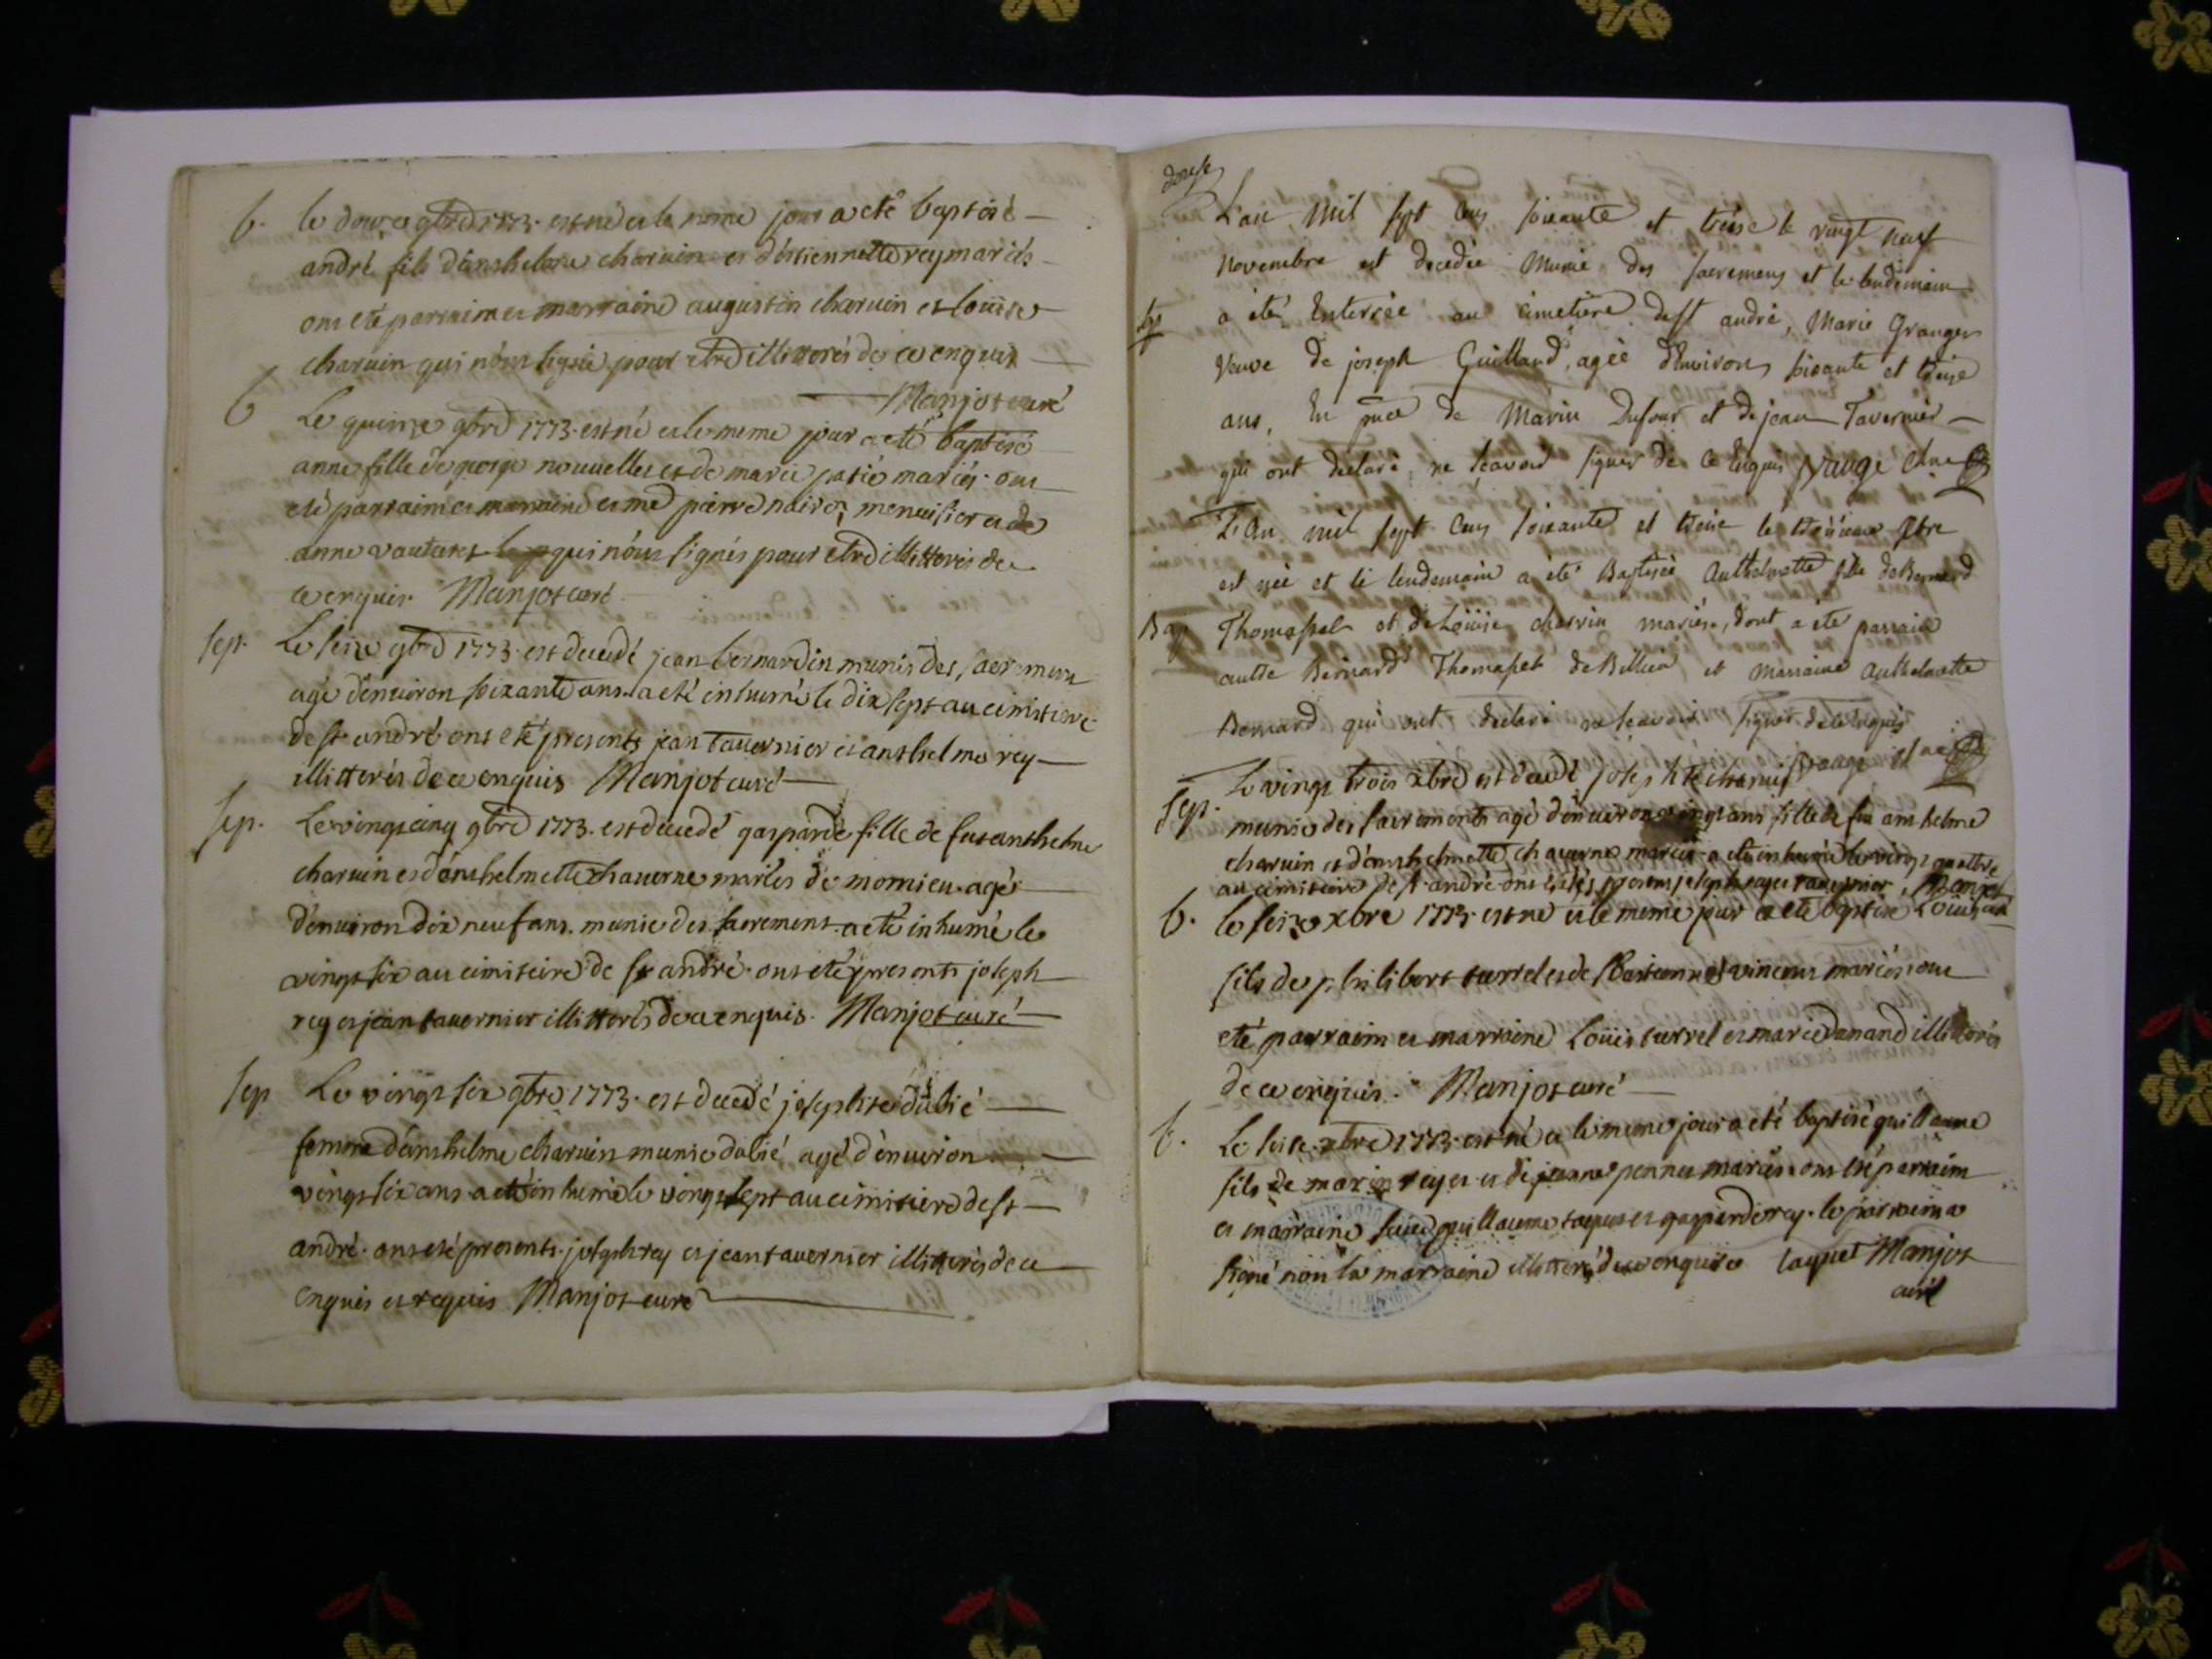 b. le douze 9bre 1773. est né et le meme jour a eté baptisé
andré fils d'anthelme charuin et d'estiennette rey mariés
ont eté parraim et marraine augustin charuin et loüise
charuin qui n'ont signé pour etre illitterés de ce enquis
Manjot curé
b Le quinze 9bre 1773. est né et le meme jour a eté baptisé
anne fille de nouuelle et de marie mariés. ont
eté parraim et marraine et me pierre menuisier et de
anne qui n'ont signés pour etre illitterés de
ce enquis Manjot curé
sep. Le seize 9bre 1773. est decedé jean bernardin munis des sacremens
agé d'enuiron soixante ans. a eté inhumé le dix sept au cimitiere
de st andré ont eté presents jean tauernier et anthelme rey
illitterés de ce enquis Manjot curé
sep. Le vingt cinq 9bre 1773. est decedé gasparde fille de fut anthelme
charuin et d'anthelmette chauerne mariés de momieu. agés
d'enuiron dix neuf ans. munie des sacremens a eté inhumé le
vingt six au cimiteire de st andré. ont eté presents joseph
rey et jean tauernier illitterés de ce enquis. Manjot curé
sep Le vingt six 9bre 1773. est decedé josephte dubié
femme d'anthelme charuin munie agé d'enuiron
vingt six ans a eté inhumé le vingt sept au cimitiere de st
andré. ont eté presents. joseph rey et jean tauernier illitterés de ce
enquis et requis Manjot curé
douse
L'an mil sept cens soixante et treise le vingt neuf
Novembre est decedée munie des sacremens et le lendemain
sep a été Enterrée au cimetiere de st andré, Marie Granger
Veuve de joseph Guilland, agée d'Environ soixante et treize
ans, En pnce de Marin Dufour et de jean Tavernier
qui ont declaré ne scavoir signer de ce Enquis
L'an mil sept cens soixante et treise le troisieme
est née et le lendemain a été Baptisée Anthelmette fille de Bernard
Bap Thomasset et de Loüise charvin mariés, dont a été parrain
autre Bernard Thomasset de et marraine Anthelmette
Bernard qui ont declaré ne scavoir signer de ce Enquis
sep. Le vingt trois xbre est decedé josephte charuin
munie des sacrements agé d'enuiron vingt ans fille de fu anthelme
charuin et d'anthelmette chauerne mariés a eté inhumé le vingt quattre
au cimiteire de st andré ont etés presens joseph tauernier, Manjot
b. le seize xbre 1773. est né et le meme jour a eté baptisé Loüis
fils de philibert surrel et de vincent mariés ont
eté parraim et marraine Loüis surrel et marie illitterés
de ce enquis. Manjot curé
b. Le seise xbre 1773. est né et le meme jour a eté baptisé guillaume
fils de marin et de jeanne pennet mariés. ont eté parraim
et marraine guillaume et gasparde rey. le parraim a
signé non la marraine illitteré de ce enquise Manjot
curé